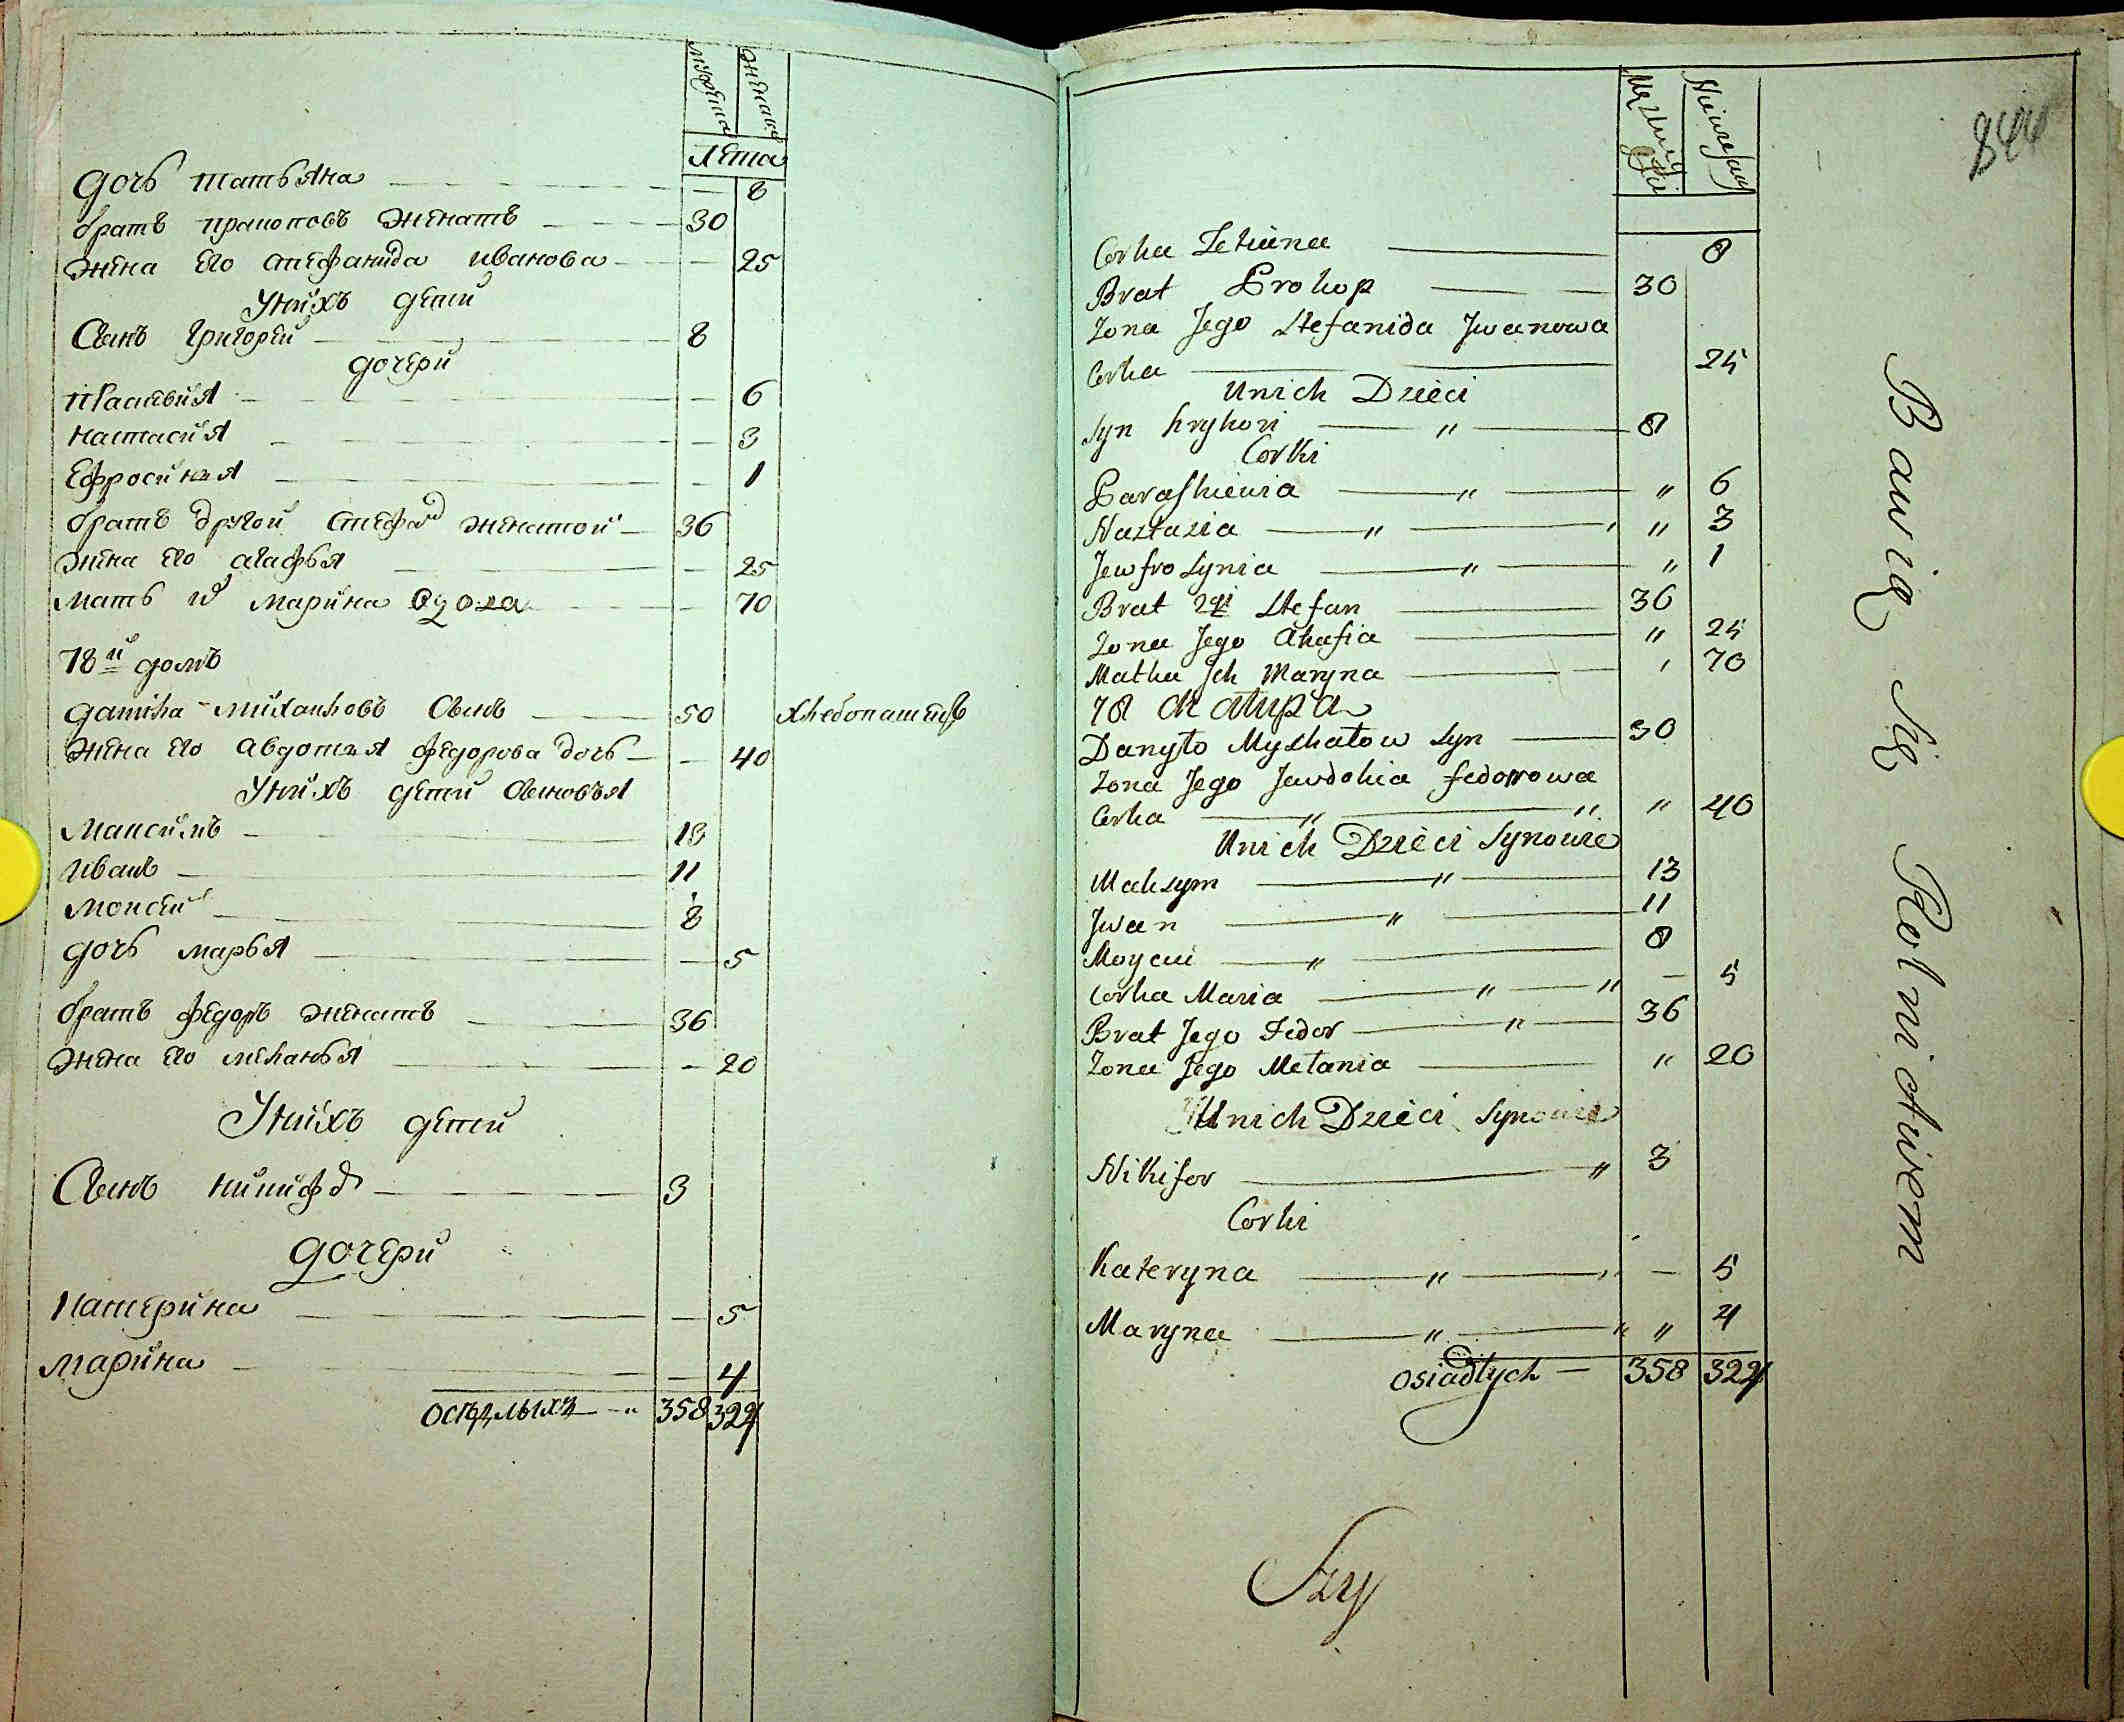 мужеска женска
Лета
дочь татьяна — 8
братъ прокопъ женатъ — 30
жена его стефанида иванова — 25
у нихъ дети
Сынъ григорей — 8
дочери
прасковия — 6
настасия — 3
Ефросинья — 1
братъ другой стефан женатой — 36
жена его агафья — 25
мать их марина вдова — 70
78й домъ
данила михайловъ сынъ — 50 хлебопашецъ
жена его авдотья федорова дочь — 40
у нихъ дети сыновья
максимъ — 13
иванъ — 11
моисей — 8
дочь марья — 5
братъ федоръ женатъ — 36
жена его меланья — 20
У нихъ дети
Сынъ никифор — 3
дочери
катерина — 5
марина — 4
оседлыхъ — „ 358 324
Corka Tetiana — 8
Brat Prokop — 30
Zona Jego Stefanida Jwanowa
Corka — 25
Unich Dzieci
Syn hryhori — „ — 8
Corki
Paraskiewia — „ — „ 6
Nastazia — „ — „ 3
Jewfrosynia — „ — „ 1
Brat 2gi Stefan — 36
Zona Jego Ahafia — „ 25
Matka Jch Maryna — 70
78 Chałupa
Danyło Mychałow Syn — 50
Zona Jego Jewdokia fedorowa
Corka — „ — „ „ 40
Unich Dzieci Synowie
Maksym — „ — 13
Jwan — „ — 11
Moyeui — „ — 8
Corka Maria — „ — „ — 5
Brat Jego Fedor — „ — 36
Zona Jego Mełania — „ 20
Unich Dzieci Synowie
Nikifor — „ 3
Corki
Kateryna — „ — — 5
Maryna — „ — „ „ 4
osiadłych — 358 324
Szy
Bawią Się Rolnictwem